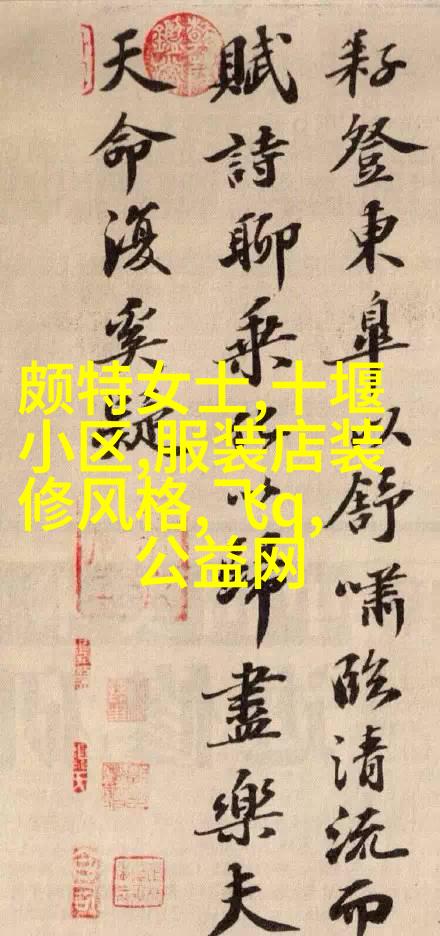 耔登東皐以舒嘯臨清流而
賦詩聊乘化以歸盡樂夫
天命復奚疑
颇特女士,十堰
小区,服装店装
修风格, 飞q,
公益网